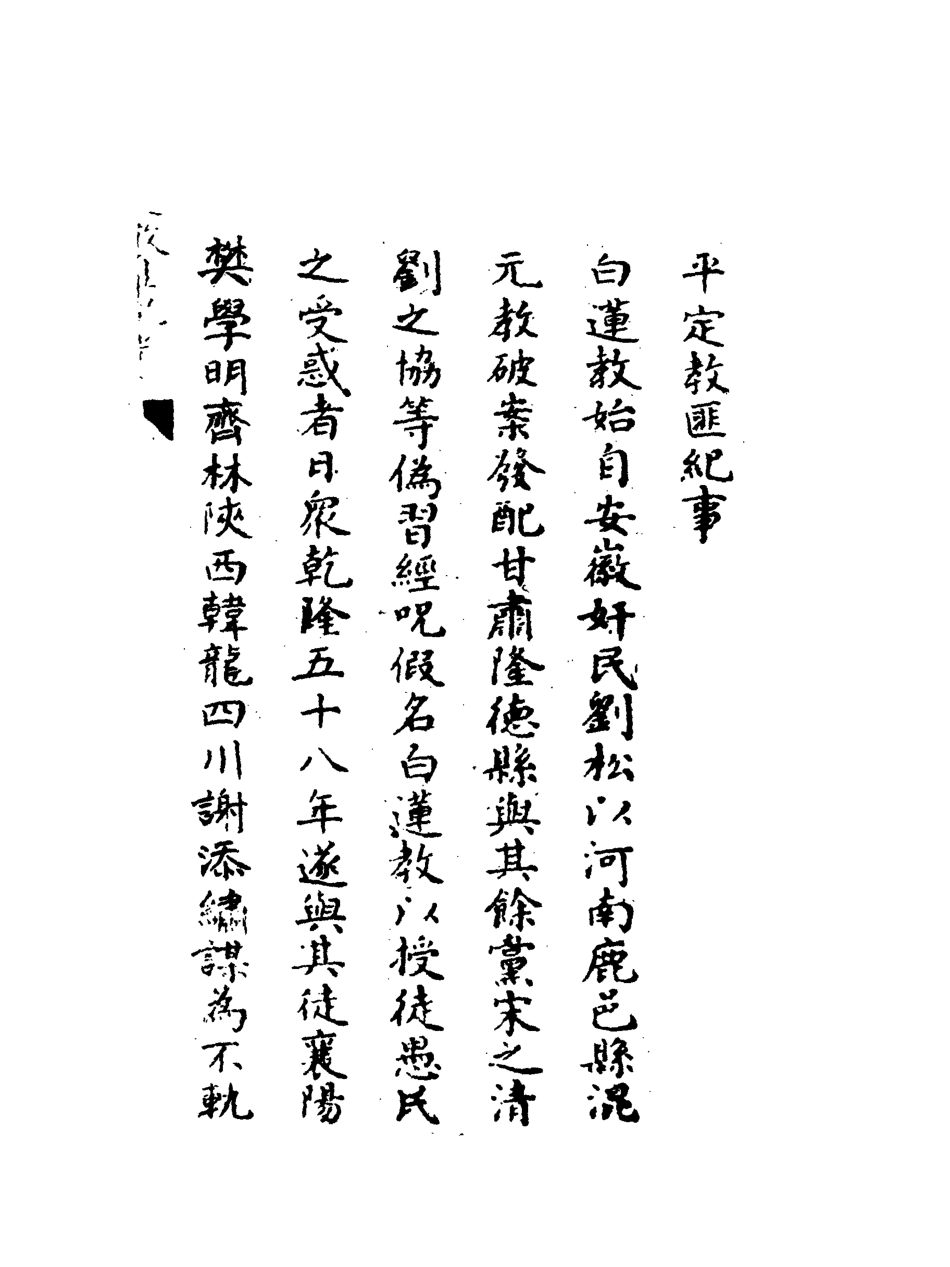 平定教匪紀事
白蓮教始自安徽奸民劉松以河南鹿邑縣混
元教破案發配甘肅隆德縣與其餘黨宋之清
劉之協等偽習經呪假名白蓮教以授徒愚民
之受惑者日衆乾隆五十八年遂與其徒襄陽
樊學明齊林陝西韓龍四川謝添繡謀為不軌